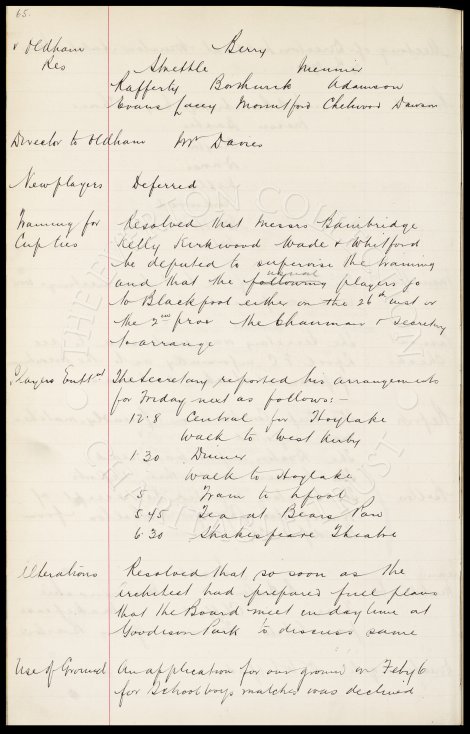 65.
v Oldham Berry
Res Strettle Meunier
Rafferty Borthwick Adamson
Evans Lacey Mountford Chetwood Dawson
Director to Oldham Mr Davies
New players Deferred
Training for Resolved that Messrs Bainbridge
Cup ties Kelly Kirkwood Wade & Whitford
be deputed to supervise the training
usual
and that the following players go
to Blackpool either on the 26th inst or
the 2nd prox the Chairman & Secretary
to arrange
Players Entt The Secretary reported his arrangements
for Friday next as follows:-
12.8 Central for Hoylake
Walk to West Kirby
1.30 Dinner
Walk to Hoylake
5 Train to Lpool
5.45 Tea at Bears Paw
6.30 Shakespeare Theatre
Alterations Resolved that so soon as the
architect had prepared full plans
that the Board meet in daytime at
Goodison Park to discuss same
Use of Ground An application for our ground on Feby 6
for Schoolboys matches was declined